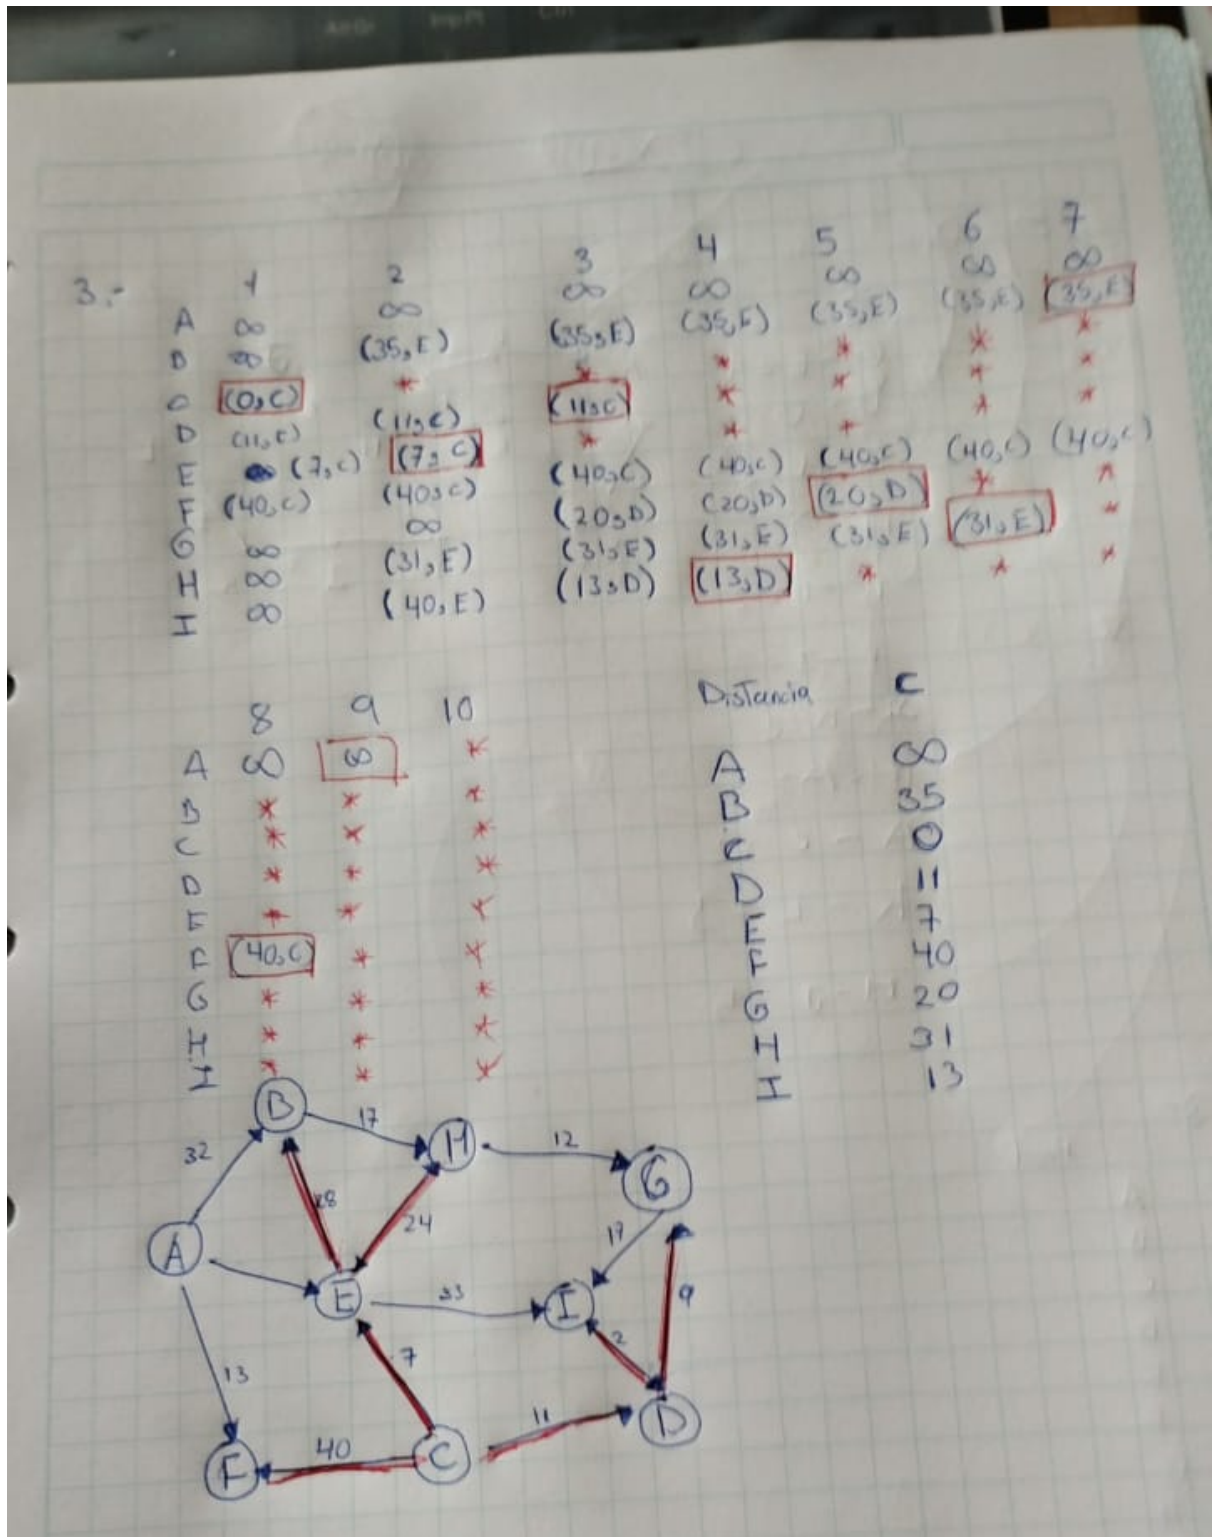 3.- 1 2 3 4 5 6 7
A ∞ ∞ ∞ ∞ ∞ ∞ ∞
B ∞ (35,E) (35,E) (35,E) (35,E) (35,E) (35,E)
C (0,C) * * * * * *
D (11,C) (11,C) (11,C) * * * *
E (7,C) (7,C) * * * * *
F (40,C) (40,C) (40,C) (40,C) (40,C) (40,C) (40,C)
G ∞ ∞ (20,D) (20,D) (20,D) * *
H ∞ (31,E) (31,E) (31,E) (31,E) (31,E) *
I ∞ (40,E) (13,D) (13,D) * * *
8 9 10
A ∞ ∞ *
B * * *
C * * *
D * * *
E * * *
F (40,C) * *
G * * *
H * * *
I * * *
Distancia C
A ∞
B 35
C 0
D 11
E 7
F 40
G 20
H 31
I 13
B 17 H 12 G
32 28 24 17
A E 33 I 2 9
13 7
F 40 C 11 D